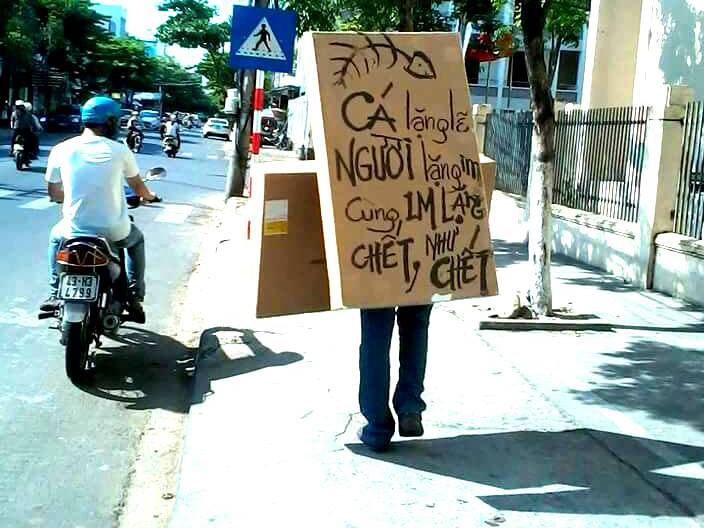 CÁ lặng lẽ
NGƯỜI lặng im
Cùng IM LẶNG
CHẾT, NHƯ CHẾT
43-H3
4799